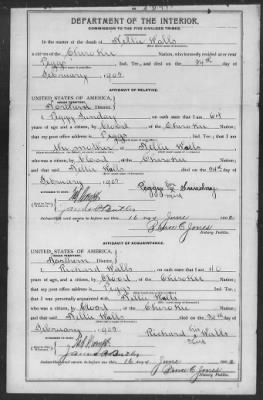 DEPARTMENT OF THE INTERIOR,
COMMISSION TO THE FIVE CIVILIZED TRIBES.
In the matter of the death of Nellie Walls
a citizen of the Cherokee Nation, who formerly resided at or near
Peggs, Ind. Ter., and died on the 24th day of
February, 1902
AFFIDAVIT OF RELATIVE.
UNITED STATES OF AMERICA,
INDIAN TERRITORY,
Northern District.
I, Peggy Sunday, on oath state that I am 64
years of age and a citizen, by blood, of the Cherokee Nation;
that my post office address is Peggs, Ind. Ter.; that I am
the mother of Nellie Walls
who was a citizen, by blood, of the Cherokee Nation;
and that said Nellie Walls died on the 24th day of
February, 1902
Peggy Sunday
mark
Subscribed and sworn to before me this 16 day of June 190
Notary Public.
AFFIDAVIT OF ACQUAINTANCE.
UNITED STATES OF AMERICA,
INDIAN TERRITORY,
Northern District.
I, Richard Walls, on oath state that I am 40
years of age, and a citizen by blood of the Cherokee Nation;
that my post office address is Peggs, Ind. Ter.;
that I was personally acquainted with Nellie Walls
who was a citizen, by blood, of the Cherokee Nation;
and that said Nellie Walls died on the 24th day of
February, 1902
Richard his Walls
mark
Subscribed and sworn to before me this 16 day of June 190
Notary Public.